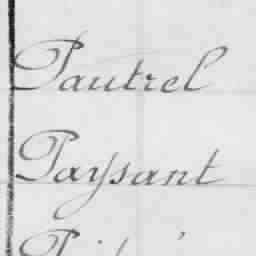 Pautrel
Paysant